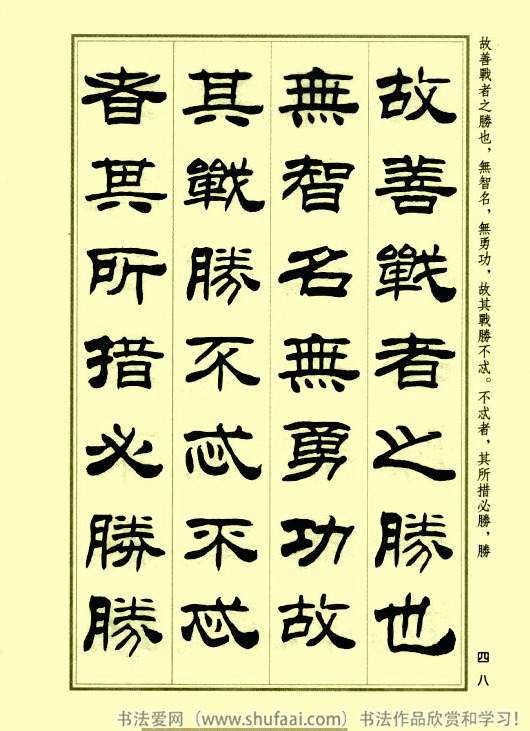 故善戰者之勝也，無智名，無勇功，故其戰勝不忒。不忒者，其所措必勝，勝
故善戰者之勝也
無智名無勇功故
其戰勝不忒不忒
者其所措必勝勝
四八
书法爱网（www.shufaai.com）书法作品欣赏和学习！